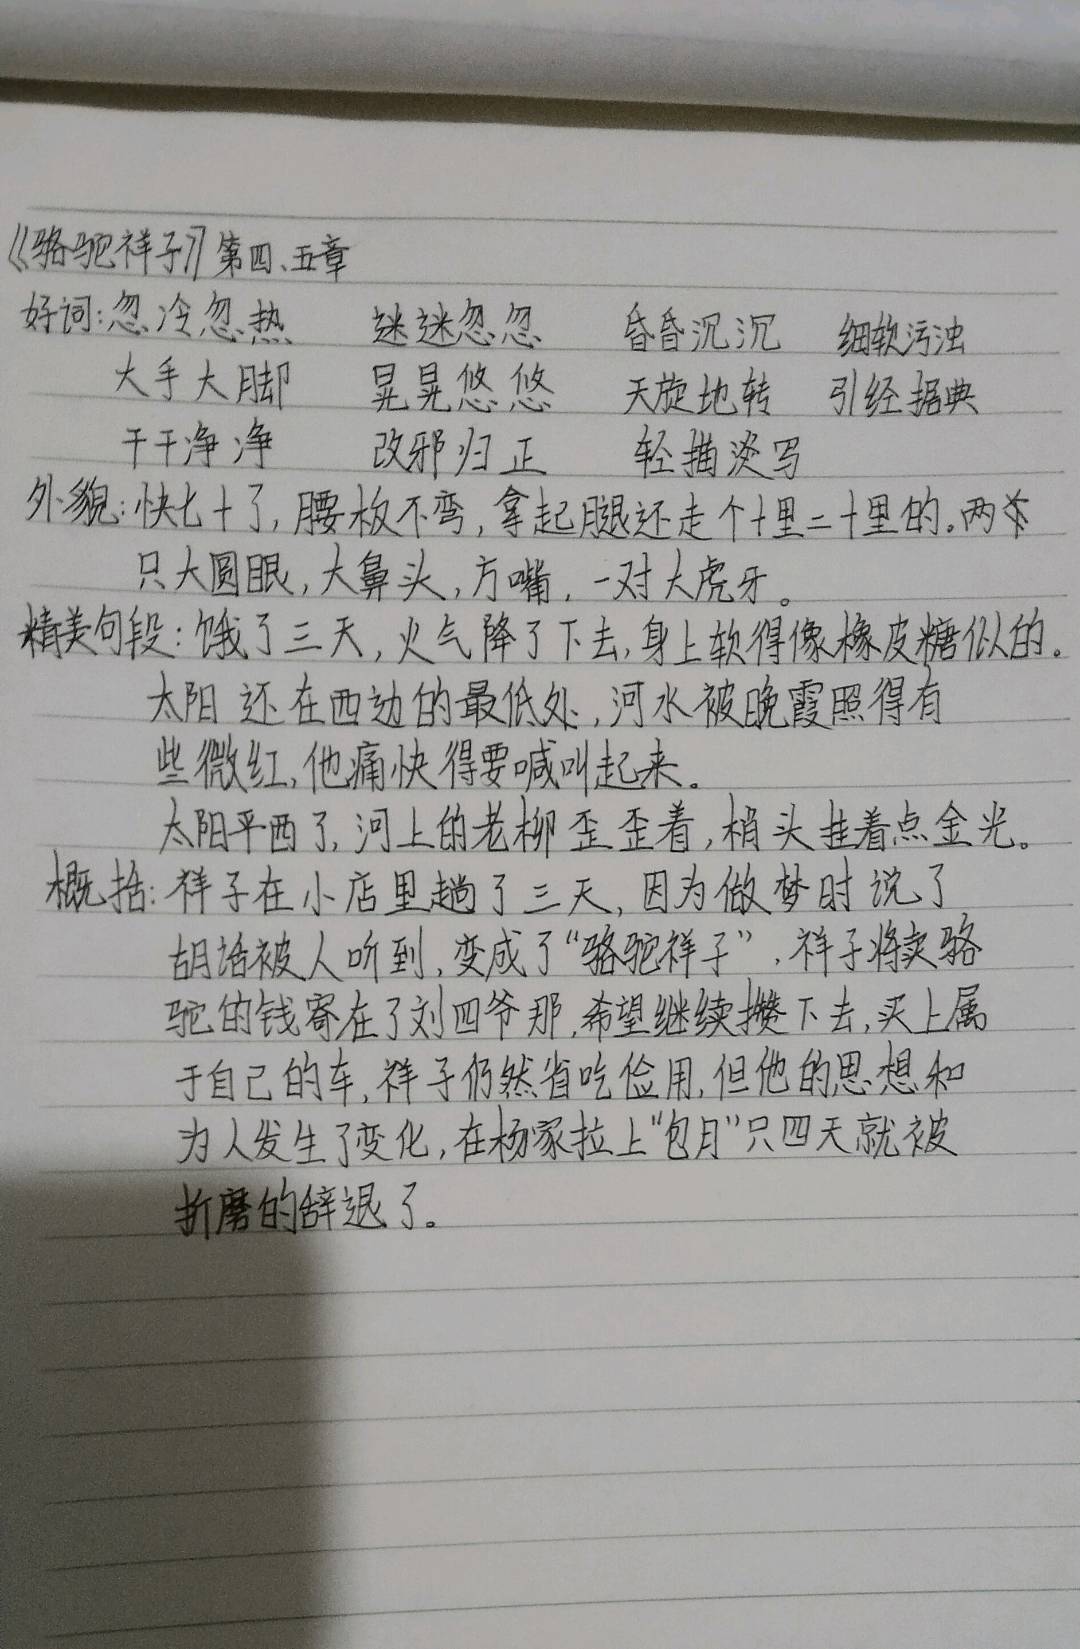 《骆驼祥子》第四、五章
好词:忽冷忽热 迷迷忽忽 昏昏沉沉 细软污浊
大手大脚 晃晃悠悠 天旋地转 引经据典
干干净净 改邪归正 轻描淡写
外貌:快七十了,腰板不弯,拿起腿还走个十里二十里的。两
只大圆眼,大鼻头,方嘴,一对大虎牙。
精美句段:饿了三天,火气降了下去,身上软得像橡皮糖似的。
太阳还在西边的最低处,河水被晚霞照得有
些微红,他痛快得要喊叫起来。
太阳平西了,河上的老柳歪歪着,梢头挂着点金光。
概括:祥子在小店里趟了三天,因为做梦时说了
胡话被人听到,变成了“骆驼祥子”,祥子将卖骆
驼的钱寄在了刘四爷那,希望继续攒下去,买上属
于自己的车,祥子仍然省吃俭用,但他的思想和
为人发生了变化,在杨家拉上“包月”只四天就被
折磨的辞退了。